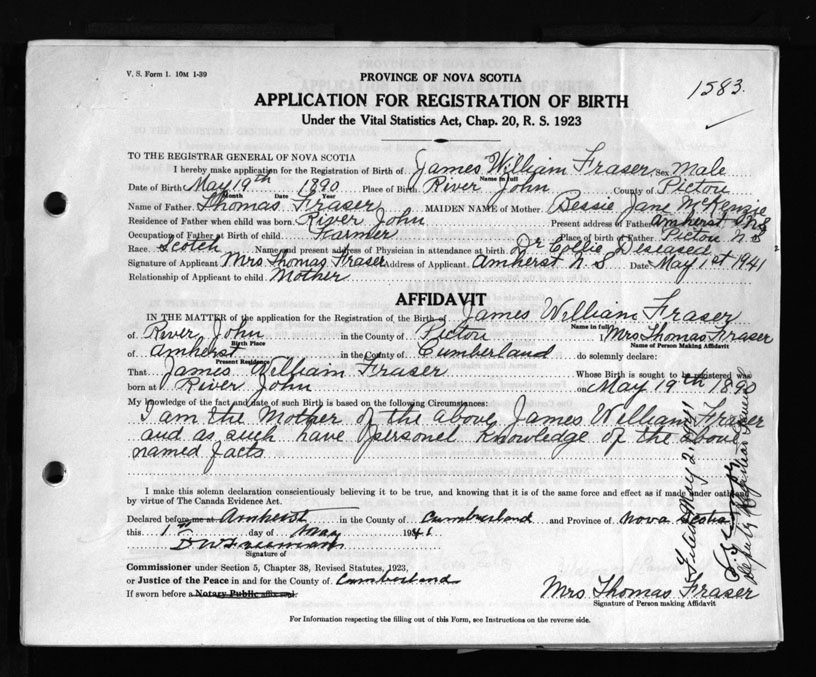 V. S. Form 1. 10M 1-39
PROVINCE OF NOVA SCOTIA
1583.
APPLICATION FOR REGISTRATION OF BIRTH
Under the Vital Statistics Act, Chap. 20, R. S. 1923
TO THE REGISTRAR GENERAL OF NOVA SCOTIA
I hereby make application for the Registration of Birth of James William Fraser Sex Male
Name in full
Date of Birth May 19th 1890 Place of Birth River John County of Pictou
Month Date Year
Name of Father Thomas Fraser MAIDEN NAME of Mother Bessie Jane McKenzie
Residence of Father when child was born River John Present address of Father Amherst N.S
Occupation of Father at Birth of child Farmer Place of birth of Father Pictou N.S
Race Scotch Name and present address of Physician in attendance at birth Dr Collie Deseased
Signature of Applicant Mrs Thomas Fraser Address of Applicant Amherst N.S Date May 1st 1941
Relationship of Applicant to child Mother
AFFIDAVIT
IN THE MATTER of the application for the Registration of the Birth of James William Fraser
Name in full
of River John in the County of Pictou I Mrs Thomas Fraser
Birth Place Name of Person Making Affidavit
of Amherst in the County of Cumberland do solemnly declare:
Present Residence
That James William Fraser Whose Birth is sought to be registered was
born at River John on May 19th 1890
My knowledge of the fact and date of such Birth is based on the following Circumstances:
I am the Mother of the above James William Fraser
and as such have personel knowledge of the above
named facts
I make this solemn declaration conscientiously believing it to be true, and knowing that it is of the same force and effect as if made under oath and
by virtue of The Canada Evidence Act.
Declared before me at Amherst in the County of Cumberland and Province of Nova Scotia
this 1st day of May 1941
Signature of
Commissioner under Section 5, Chapter 38, Revised Statutes, 1923,
or Justice of the Peace in and for the County of Cumberland
If sworn before a Notary Public affix seal.
Mrs Thomas Fraser
Signature of Person making Affidavit
For Information respecting the filling out of this Form, see Instructions on the reverse side.
Filed May 2, 1941
Deputy Registrar General